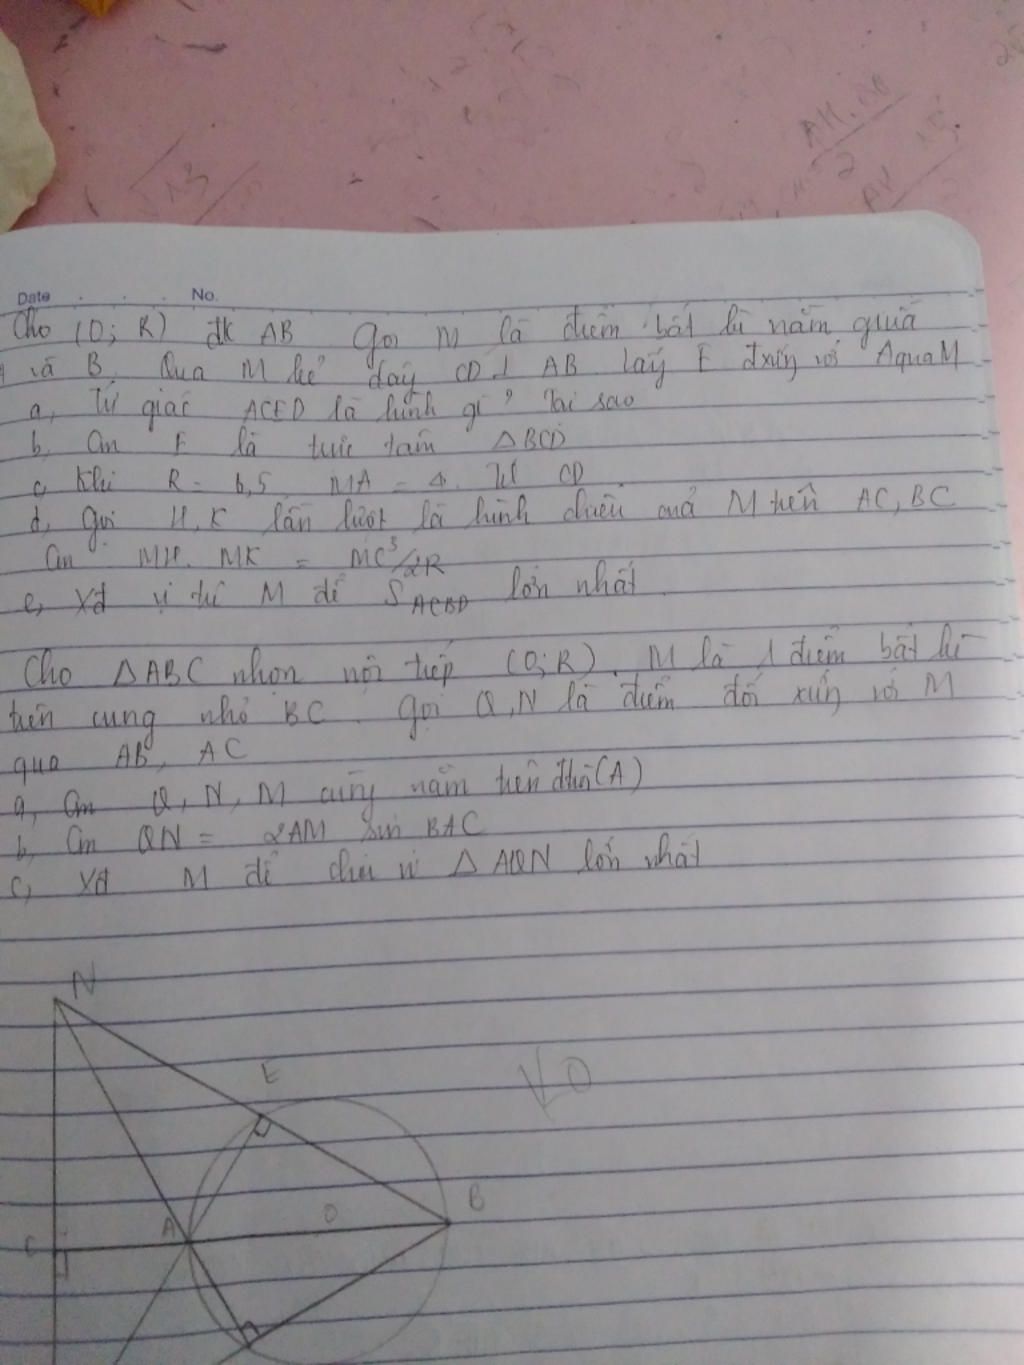 AH.
2
AH
√13
Date No.
Cho (O; R) đk AB Gọi M là điểm bất kì nằm giữa
và B. Qua M kẻ dây CD ⊥ AB lấy E đxứng với A qua M
a, Tứ giác ACED là hình gì? Tại sao
b, Cm E là trực tâm △BCD
c, Khi R = 6,5 MA = 4. Tet CD
d, gọi H, K lần lượt là hình chiếu của M trên AC, BC
Cm MH. MK = MC³/2R
e, Xđ vị trí M để S ACBD lớn nhất
Cho △ABC nhọn nội tiếp (O;R). M là 1 điểm bất kì
trên cung nhỏ BC. Gọi Q,N là điểm đối xứng với M
qua AB, AC
a, Cm Q, N, M cùng nằm trên đtròn(A)
b, Cm QN = 2AM sin BAC
c, Xđ M để chu vi △AQN lớn nhất
N
E
B
A
O
C